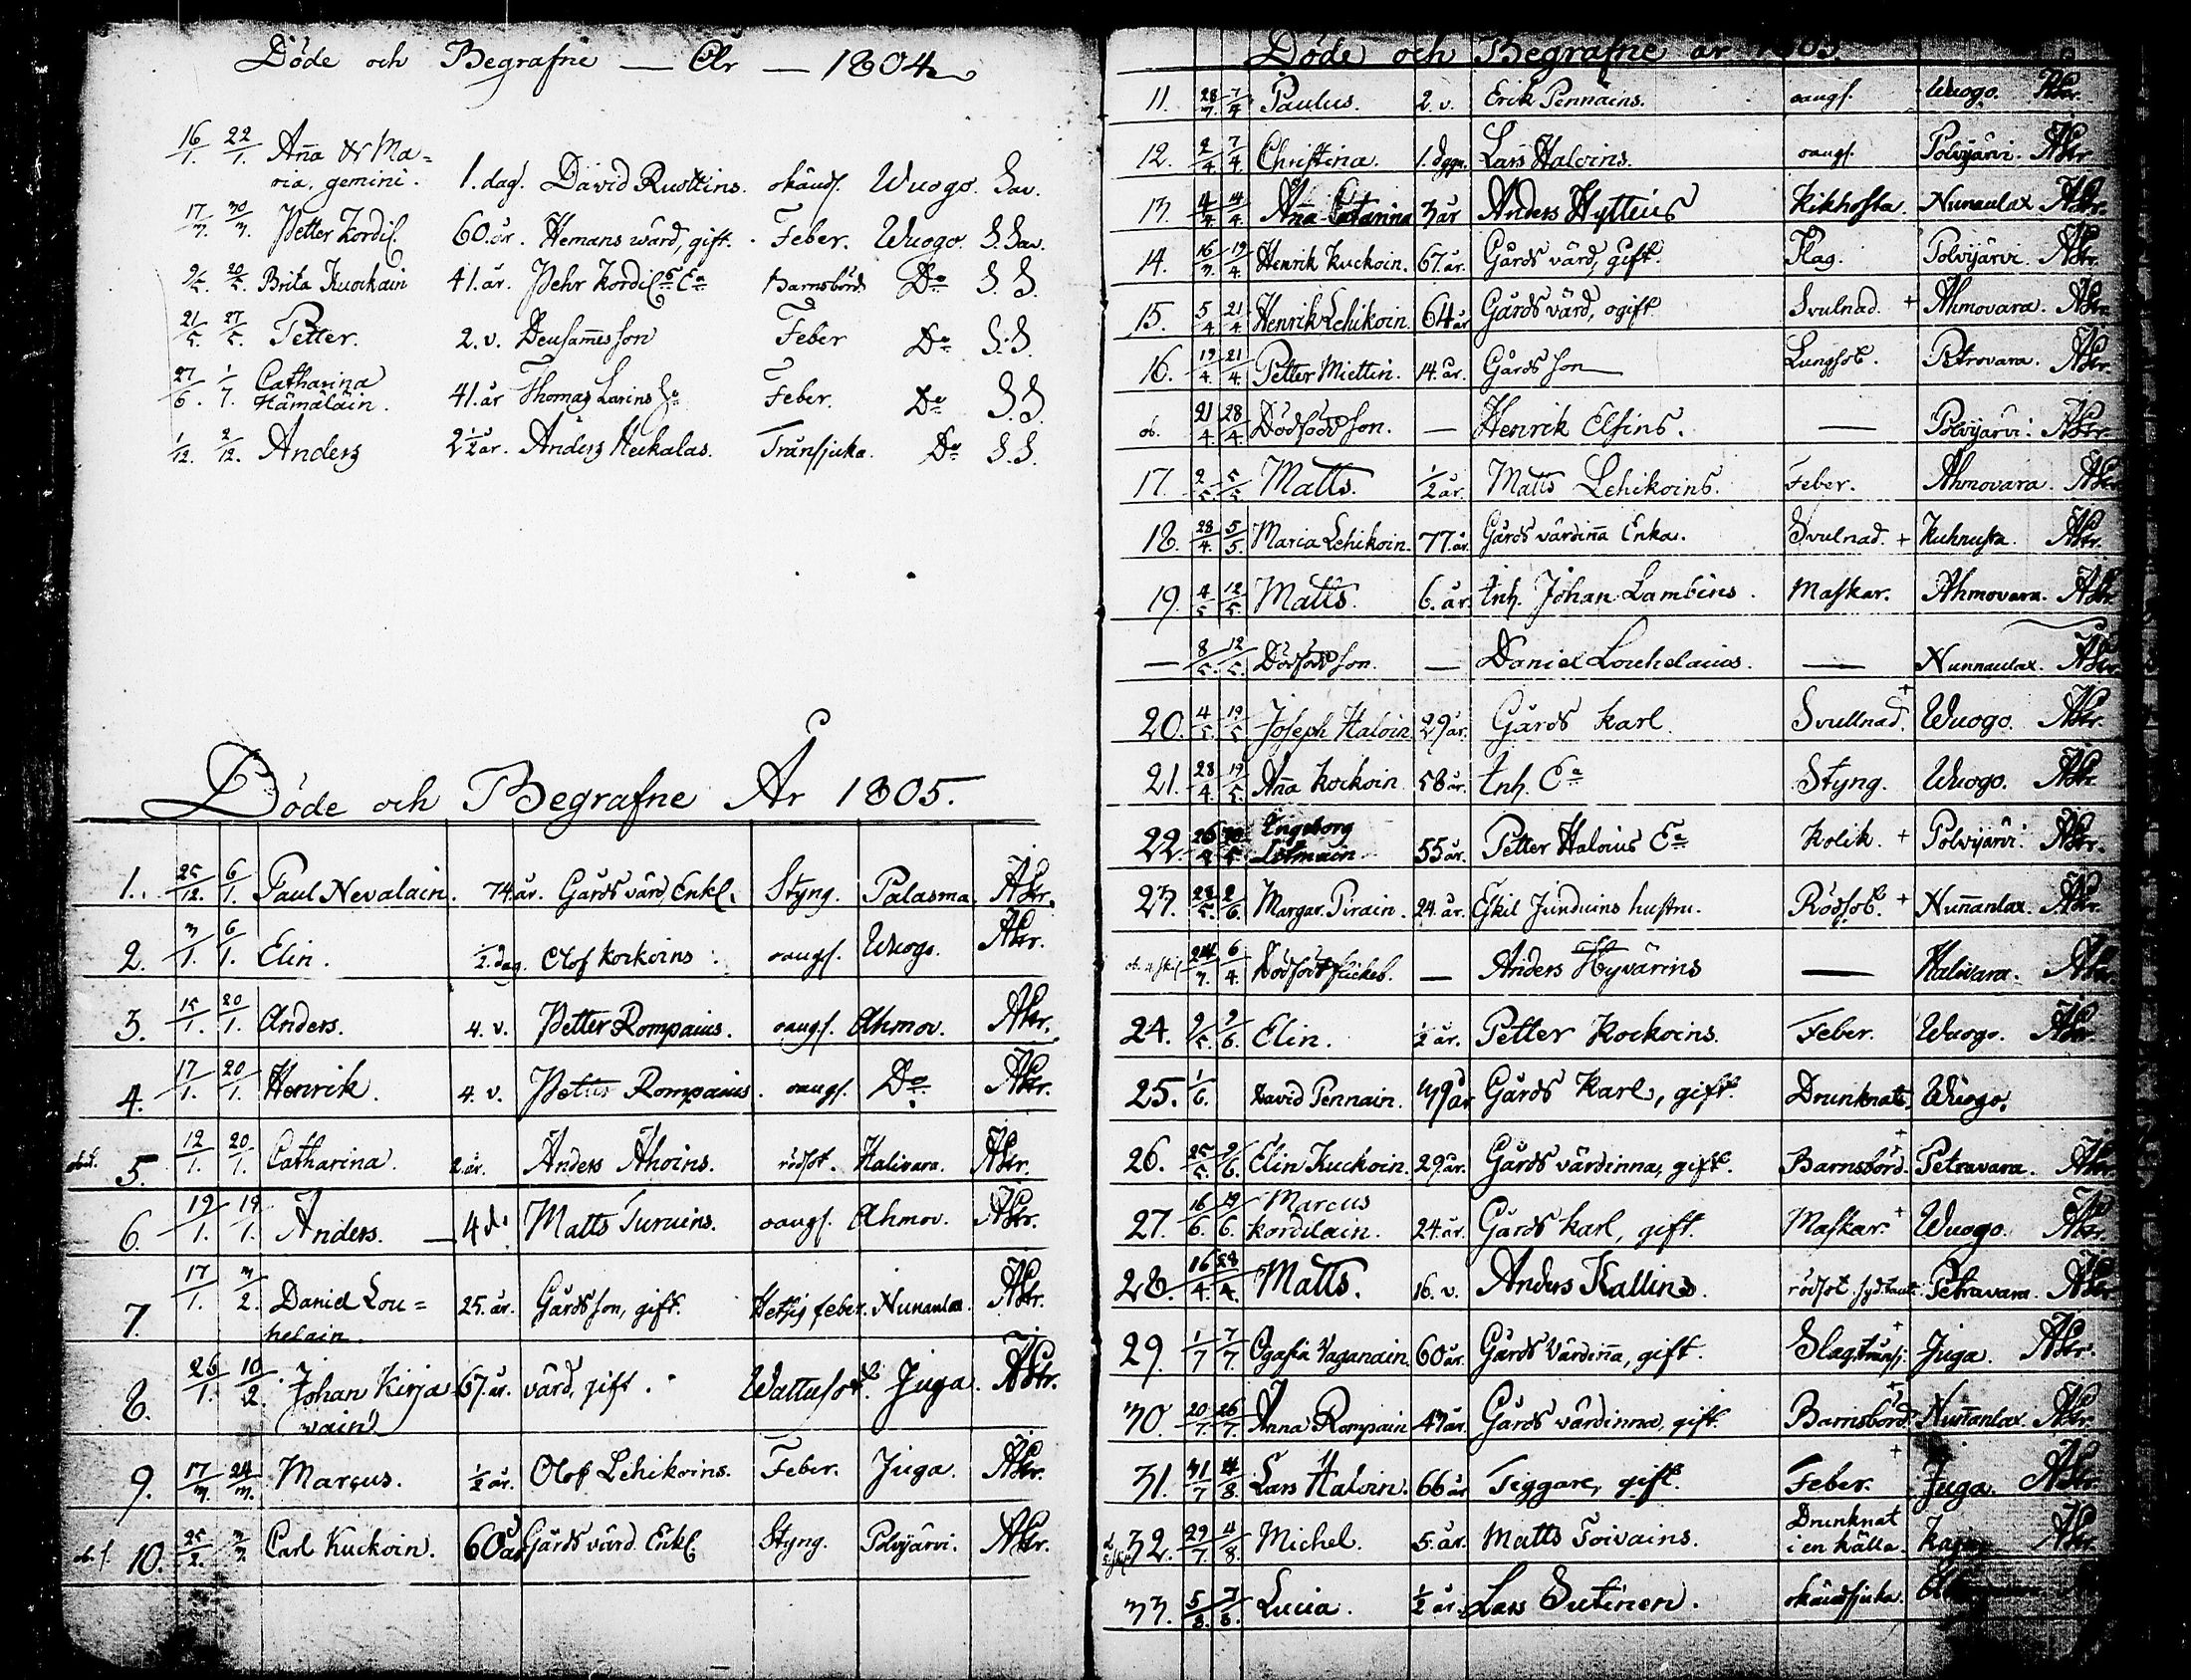 Döde och Begrafne — År — 1804
16/1. 22/1. Aña & Ma=
ria, gemini. 1. dag. David Ruottins. okänds. Wuogo. Sav.
17/3. 30/3. Petter Kordel. 60. år. Hemans värd, gift. Feber. Wuogo. S. Sav.
9/5. 20/5. Brita Kuockain 41. år. Pehr Kordels Ea Barnsbörd Do S. S.
21/5. 27/5. Petter. 2. v. Densam̃es son Feber Do S. S.
27/6. 1/7. Catharina
Hämäläin. 41. år Thomas Larins Feber. Do S. S.
1/12. 2/12. Anders 2 1/2 år. Anders Heikalas. Trånsjuka. Do S. S.
Döde och Begrafne År 1805.
1. 25/12. 6/1. Paul Nevalain. 74 år. Gårds värd, Enkl. Styng. Palasma. Akr.
2. 3/1. 6/1. Elin. 1/2. dag. Olof Korkoins oangf. Wuogo. Akr.
3. 15/1. 20/1. Anders. 4. v. Petter Rompains. oangf. Ahmov. Akr.
4. 17/1. 20/1. Henrik. 4. v. Petter Rompains. oangf. Do Akr.
5. 12/1. 20/1. Catharina. 2. år. Anders Ahoins. rödsot. Halivara. Akr.
6. 19/1. 19/1. Anders. 4 d. Matts Turuins. oangf. Ahmov. Akr.
7. 17/1. 3/2. Daniel Lou=
helain. 25. år. Gårds son, gift. Hetsig feber. Nunanlax. Akr.
8. 26/1. 10/2. Johan Kirja
wain 67. år. värd, gift. Wattusot. Juga. Akr.
9. 17/3. 24/3. Marcus. 1/2 år. Olof Lehikoins. Feber. Juga. Akr.
10. 25/2. 3/3. Carl Kuckoin. 60 år Gårds värd. Enkl Styng. Polvijärvi. Akr.
Döde och Begrafne år 1805.
11. 28/3. 7/4. Paulus. 2. v. Erik Pennains. oangf. Wuogo. Akr.
12. 2/4. 7/4. Christina. 1. dygn. Lars Haloins. oangf. Polvijärvi. Akr.
13. 4/4. 14/4. Aña Catarina 3 år Anders Hytteins Kikhosta. Nunanlax Akr.
14. 16/3. 19/4. Henrik Kuckoin. 67. år. Gårds värd, gift. Slag. Polvijärvi. Akr.
15. 5/4 21/4 Henrik Lehikoin. 64 år Gårds värd, ogift. Svulnad. + Ahmovara. Akr.
16. 19/4. 21/4. Petter Miettin. 14. år. Gårds son Lungsot. Petrovara. Akr.
ob. 21/4. 28/4. Dödfödd son. — Henrik Elsins. — Polvijärvi. Akr.
17. 2/5. 5/5. Matts. 1/2 år. Matts Lehikoins. Feber. Ahmovara. Akr.
18. 28/4. 5/5. Maria Lehikoin. 77. år. Gårds värdiña Enka. Svulnad. + Kuhnusta. Akr.
19. 4/5 12/5. Matts. 6. år. Inh. Johan Lambins. Maskar. Ahmovara. Akr.
— 8/5. 12/5. Dödfödd son. — Daniel Louhelains. — Nunnanlax. Akr.
20. 4/5. 19/5 Joseph Haloin. 29 år. Gårds karl. Svullnad. + Wuogo. Akr.
21. 28/4. 19/5. Aña Kockoin 58 år. Inh. Ea Styng. Wuogo. Akr.
22. Ingeborg
55 år. Petter Haloins Ea Kolik. + Polvijärvi. Akr.
23. 28/5. 2/6. Margar. Pirain. 24. år. Eskil Junduins hustru. Rödsot. + Nuñanlax. Akr.
24/3. 6/4. Dödfödt flickeb. — Anders Hyvärins — Halivara. Akr.
24. 9/5. 9/6. Elin. 1/2 år. Petter Kockoins. Feber. Wuogo. Akr.
25. 1/6. David Pennain. 39 år Gårds Karl, gift. Drunknat. Wuogo.
26. 25/5. 9/6. Elin Kuckoin. 29 år. Gårds värdinna, gift. Barnsbörd. + Petravara. Akr.
27. 16/6. 19/6. Marcus
Kordelain. 24. år. Gårds karl, gift. Maskar. + Wuogo. Akr.
28. 16/4. 28/4. Matts. 16. v. Anders Kallins. rödsot. Petravara. Akr.
29. 1/7 7/7. Ogafia Vaganain. 60 år. Gårds Värdiña, gift. Slag. + Juga. Akr.
30. 20/7. 26/7. Anna Rompain 43 år. Gårds värdinna, gift. Barnsbörd. + Nuñanlax. Akr.
31. 31/7 4/8. Lars Haloin. 66 år Tiggare, gift. Feber. + Juga. Akr.
32. 29/7. 4/8. Michel. 5. år. Matts Toivains. Drunknat
i en källa. Akr.
33. 5/8. 7/8. Lucia. 1/2 år. Lars Sutinen. okändsjuka.